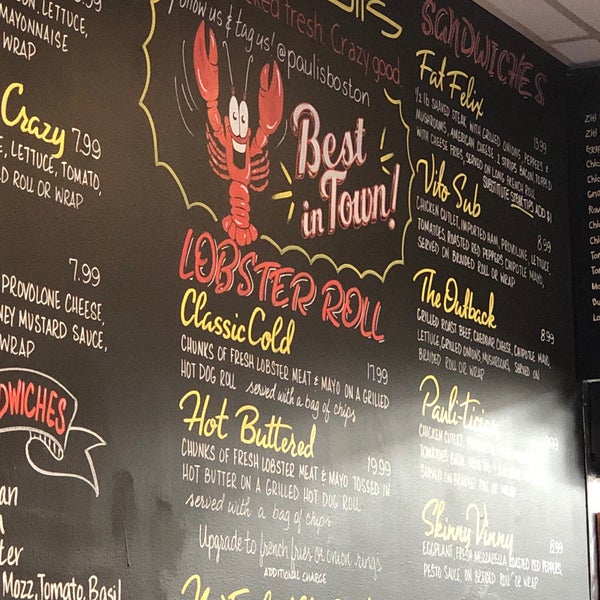 ON, LETTUCE,
MAYONNAISE
WRAP
Crazy 7.99
E, LETTUCE, TOMATO,
D ROLL OR WRAP
7.99
PROVOLONE CHEESE,
NEY MUSTARD SAUCE,
WRAP
DWICHES
an
ter
Mozz, Tomato, Basil
ked fresh. Crazy good.
Follow us & tag us! @paulisboston
Best
in Town!
LOBSTER ROLL
Classic Cold
CHUNKS OF FRESH LOBSTER MEAT & MAYO ON A GRILLED 17.99
HOT DOG ROLL served with a bag of chips
Hot Buttered
CHUNKS OF FRESH LOBSTER MEAT & MAYO TOSSED IN 19.99
HOT BUTTER ON A GRILLED HOT DOG ROLL
served with a bag of chips
Upgrade to french fries or onion rings
ADDITIONAL CHARGE
SANDWICHES
Fat Felix
1/2 lb SHAVED STEAK WITH GRILLED ONIONS, PEPPERS & 13.99
MUSHROOMS, AMERICAN CHEESE, 2 STRIPS BACON TOPPED
WITH CHEESE FRIES, SERVED ON LONG FRENCH ROLL
SUBSTITUTE STEAK TIPS ADD $1
Vito Sub
CHICKEN CUTLET, IMPORTED HAM, PROVOLONE, LETTUCE, 8.99
TOMATOES, ROASTED RED PEPPERS, CHIPOTLE MAYO,
SERVED ON BRAIDED ROLL OR WRAP
The Outback
GRILLED ROAST BEEF, CHEDDAR CHEESE, CHIPOTLE MAYO, 8.99
LETTUCE, GRILLED ONIONS, MUSHROOMS, SERVED ON
BRAIDED ROLL OR WRAP
Pauli-tician
CHICKEN CUTLET, 8.99
SERVED ON BRAIDED ROLL OR WRAP
Skinny Vinny
EGGPLANT, FRESH MOZZARELLA, ROASTED RED PEPPERS, 8.99
PESTO SAUCE, ON BRAIDED ROLL OR WRAP